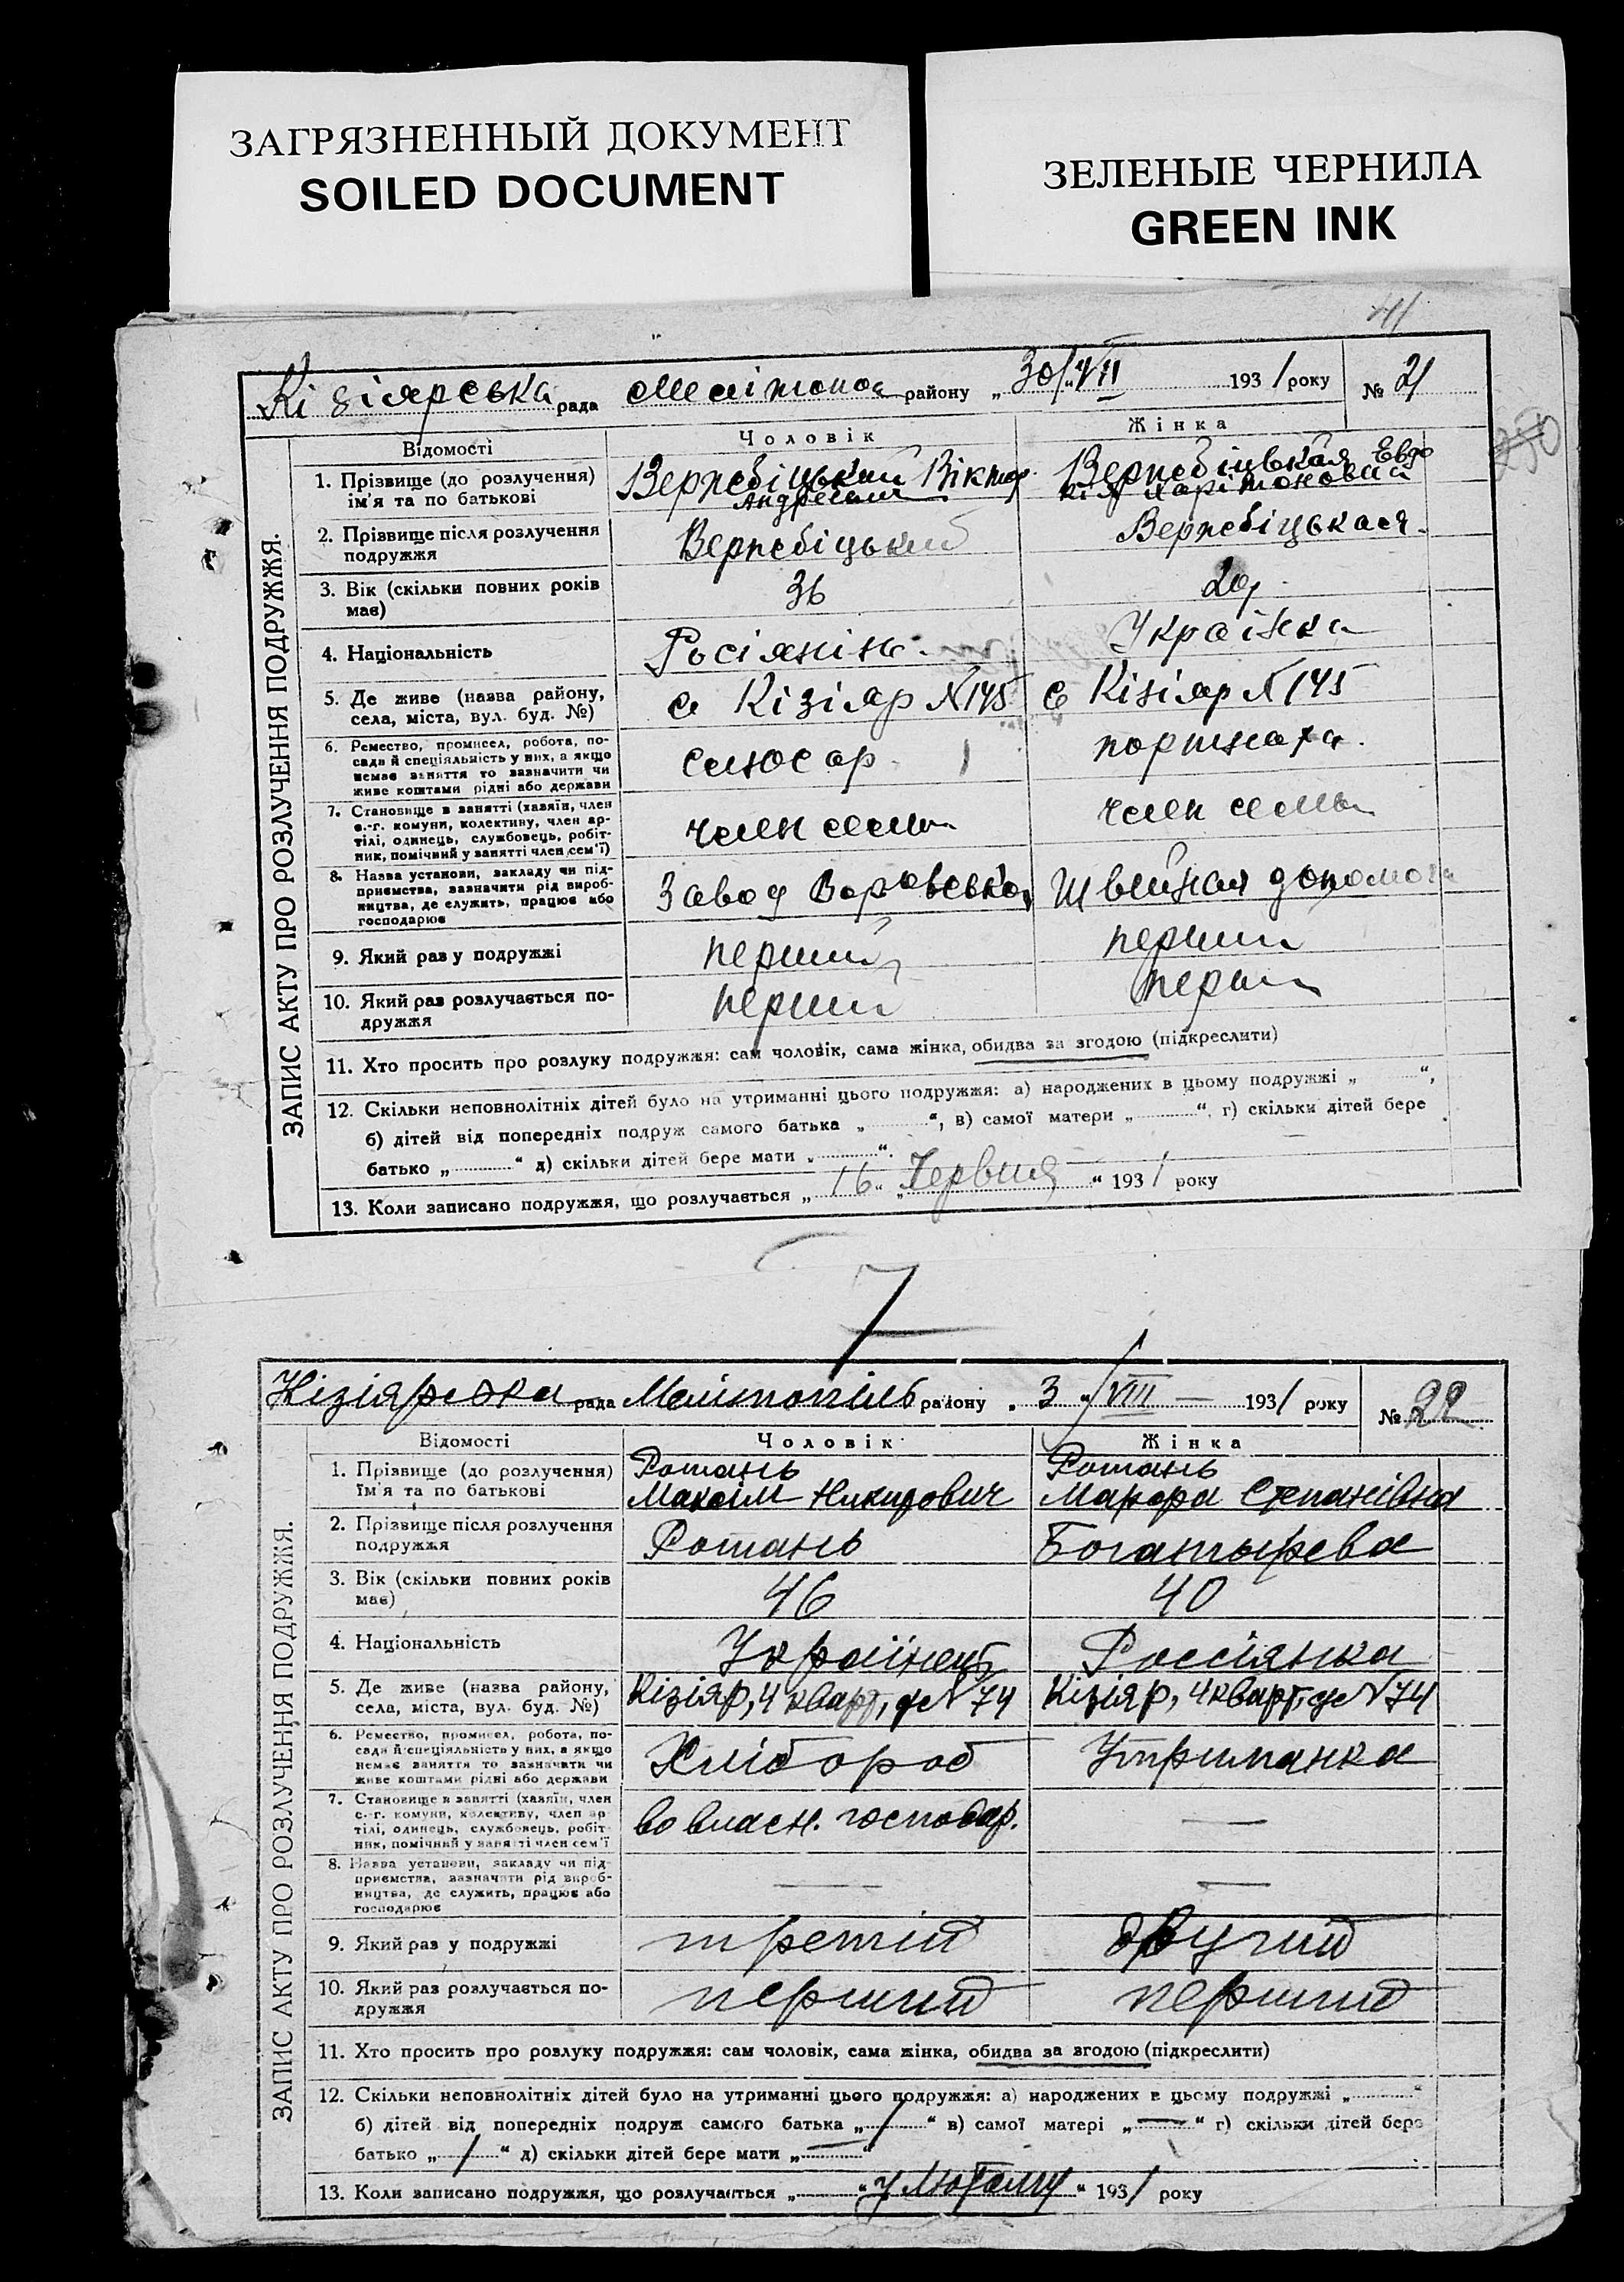 ЗАГРЯЗНЕННЫЙ ДОКУМЕНТ
SOILED DOCUMENT
ЗЕЛЕНЫЕ ЧЕРНИЛА
GREEN INK
41
Кізіярська рада району „30/VII 1931 року № 21
250
ЗАПИС АКТУ ПРО РОЗЛУЧЕННЯ ПОДРУЖЖЯ.
Відомості Чоловік Жінка
1. Прізвище (до розлучення) Віктор Евдо
ім'я та по батькові Харітоновна
2. Прізвище після розлучення
подружжя
3. Вік (скільки повних років 36
має)
4. Національність Росіянін Українка
5. Де живе (назва району, с Кізіяр №145 с Кізіяр №145
села, міста, вул. буд. №)
6. Ремество, промисел, робота, по-
сада й спеціяльність у них, а якщо слюсар
немає заняття то зазначити чи
живе коштами рідні або держави
7. Становище в занятті (хазяїн, член
с.-г. комуни, колективу, член ар- член член
тілі, одинець, службовець, робіт-
ник, помічний у занятті член сем'ї)
8. Назва установи, закладу чи під-
приємства, зазначити рід вироб- Завод Швейная допомога
ництва, де служить, працює або
господарює
9. Який раз у подружжі перший перший
10. Який раз розлучається по- перший перший
дружжя
11. Хто просить про розлуку подружжя: сам чоловік, сама жінка, обидва за згодою (підкреслити)
12. Скільки неповнолітніх дітей було на утриманні цього подружжя: а) народжених в цьому подружжі „ “,
б) дітей від попередніх подруж самого батька „ “, в) самої матери „ “, г) скільки дітей бере
батько „ “ д) скільки дітей бере мати „ “.
13. Коли записано подружжя, що розлучається „16“ „Червня“ 1931 року
7
Кізіярська рада Мелітопіль району „3“/VIII — 1931 року № 22
ЗАПИС АКТУ ПРО РОЗЛУЧЕННЯ ПОДРУЖЖЯ.
Відомості Чоловік Жінка
1. Прізвище (до розлучення) Ротань Ротань
Їм'я та по батькові Максім Никитович Марфа Степанівна
2. Прізвище після розлучення Ротань Богатырева
подружжя
3. Вік (скільки повних років 46 40
має)
4. Національність Українець Россіянка
5. Де живе (назва району, Кізіяр, 4 кварт, №74 Кізіяр, 4 кварт, №74
села, міста, вул. буд. №)
6. Ремество, промисел, робота, по-
сада й спеціяльність у них, а якщо Хлібороб Утриманка
немає заняття то зазначити чи
живе коштами рідні або держави
7. Становище в занятті (хазяїн, член
с.-г. комуни, колективу, член ар- во власн. господар. —
тілі, одинець, службовець, робіт-
ник, помічний у занятті член сем'ї
8. Назва установи, закладу чи під-
приємства, зазначити рід вироб- — —
ництва, де служить, працює або
господарює
9. Який раз у подружжі третій другий
10. Який раз розлучається по- перший перший
дружжя
11. Хто просить про розлуку подружжя: сам чоловік, сама жінка, обидва за згодою (підкреслити)
12. Скільки неповнолітніх дітей було на утриманні цього подружжя: а) народжених в цьому подружжі „ “
б) дітей від попередніх подруж самого батька „ / “ в) самої матері „ — “ г) скільки дітей бере
батько „ / “ д) скільки дітей бере мати „ — “
13. Коли записано подружжя, що розлучається „ “ у Лютому “ 1931 року